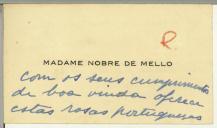 R
MADAME NOBRE DE MELLO
com os seus cumprimentos
de boa vinda oferece
estas rosas portuguesas